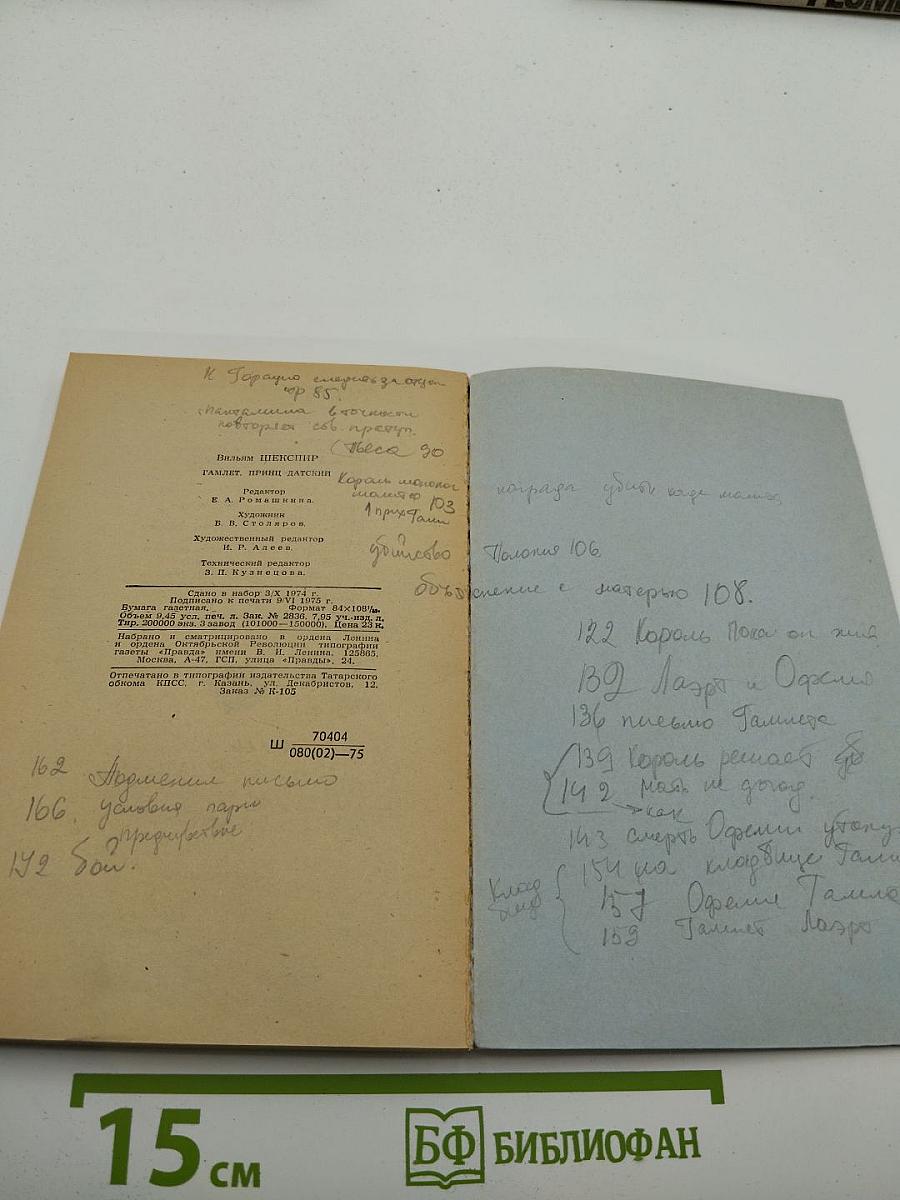 К Горацио следить за отцом
стр 85.
пантамима в точности
повторяет преступ.
(Пьеса 90
Вильям ШЕКСПИР
ГАМЛЕТ, ПРИНЦ ДАТСКИЙ
Король
103
Редактор
Е. А. Ромашкина.
Художник
В. В. Столяров.
Художественный редактор
И. Р. Алеев.
Технический редактор
З. П. Кузнецова.
Сдано в набор 3/X 1974 г.
Подписано к печати 9/VI 1975 г.
Бумага газетная. Формат 84×108¹/₃₂.
Объем 9,45 усл. печ. л. Зак. № 2836. 7,95 уч.-изд. л.
Тир. 200000 экз. 3 завод (101000—150000). Цена 23 к.
Набрано и сматрицировано в ордена Ленина
и ордена Октябрьской Революции типографии
газеты «Правда» имени В. И. Ленина, 125865,
Москва, А-47, ГСП, улица «Правды», 24.
Отпечатано в типографии издательства Татарского
обкома КПСС, г. Казань, ул. Декабристов, 12.
Заказ № К-105
Ш 70404
080(02)—75
162 Подменил письмо
166. условия пари
предчувствие
172 бой.
награда убить когда
убийство Полония 106
объяснение с матерью 108.
122 Король Пока он жив
132 Лаэрт и Офелия
136 письмо Гамлета
139 Король решает
142 мать не догад.
как
143 смерть Офелии
Клад
бище
154 на кладбище
157 Офелия
159 Гамлет Лаэрт
15 см
БФ БИБЛИОФАН